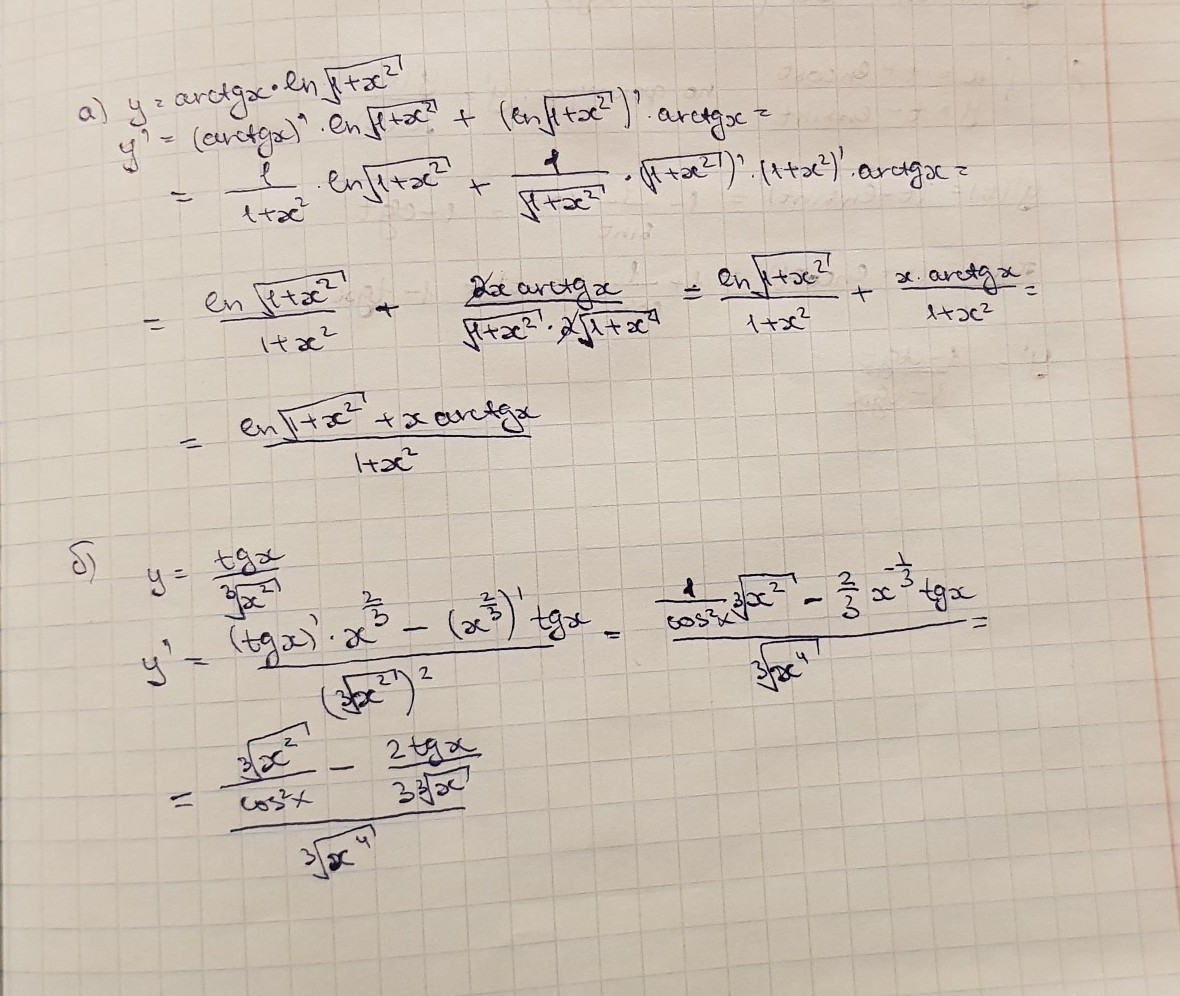 а) y = arctgx · ln√(1+x²)
y' = (arctgx)' · ln√(1+x²) + (ln√(1+x²))' · arctgx =
= 1/(1+x²) · ln√(1+x²) + 1/√(1+x²) · (√(1+x²))' · (1+x²)' · arctgx =
= ln√(1+x²)/(1+x²) + 2x arctgx/(√(1+x²) · 2√(1+x²)) = ln√(1+x²)/(1+x²) + x · arctgx/(1+x²) =
= (ln√(1+x²) + x arctgx)/(1+x²)
б) y = tgx/∛(x²)
y' = ((tgx)' · x^(2/3) − (x^(2/3))' tgx)/(∛(x²))² = (1/cos²x ∛(x²) − 2/3 x^(−1/3) tgx)/∛(x⁴) =
= (∛(x²)/cos²x − 2tgx/(3∛x))/∛(x⁴)